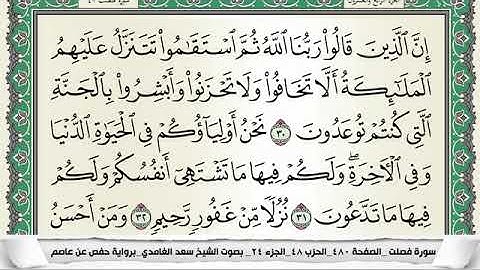 إِنَّ الَّذِينَ قَالُوا رَبُّنَا اللَّهُ ثُمَّ اسْتَقَامُوا تَتَنَزَّلُ عَلَيْهِمُ
الْمَلَائِكَةُ أَلَّا تَخَافُوا وَلَا تَحْزَنُوا وَأَبْشِرُوا بِالْجَنَّةِ
الَّتِي كُنتُمْ تُوعَدُونَ ٣٠ نَحْنُ أَوْلِيَاؤُكُمْ فِي الْحَيَاةِ الدُّنْيَا
وَفِي الْآخِرَةِ ۖ وَلَكُمْ فِيهَا مَا تَشْتَهِي أَنفُسُكُمْ وَلَكُمْ
فِيهَا مَا تَدَّعُونَ ٣١ نُزُلًا مِّنْ غَفُورٍ رَّحِيمٍ ٣٢ وَمَنْ أَحْسَنُ
سورة فصلت_الصفحة ٤٨٠_الحزب ٤٨_الجزء ٢٤_ بصوت الشيخ سعد الغامدي_برواية حفص عن عاصم